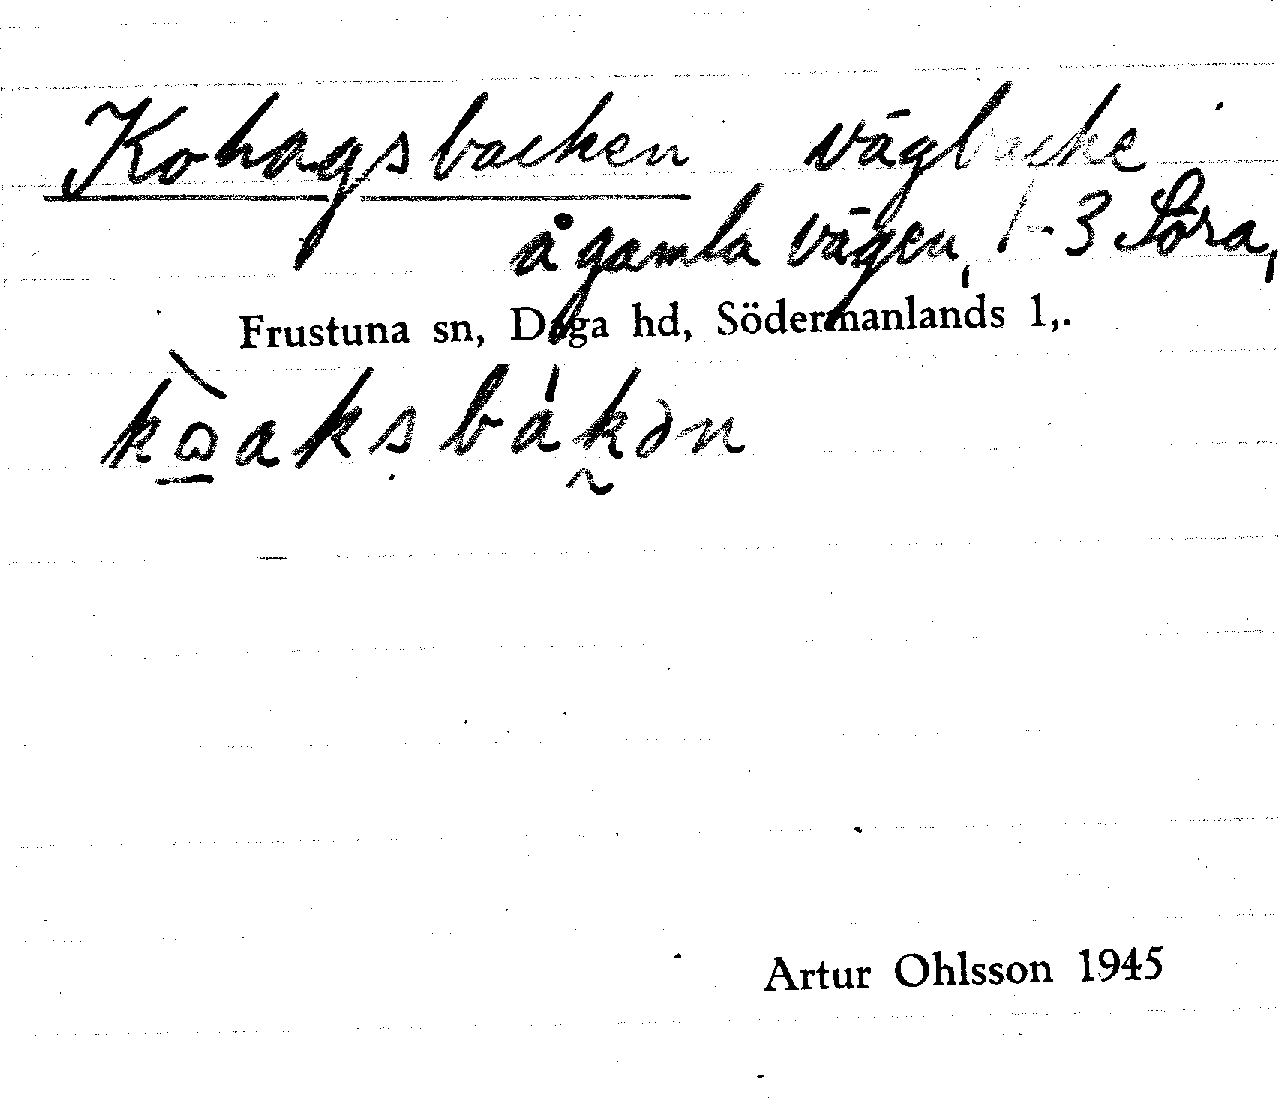 Kohagsbacken vägbacke
å gamla vägen, 1-3 Söra,
Frustuna sn, Daga hd, Södermanlands l,.
kωaksbákən
Artur Ohlsson 1945